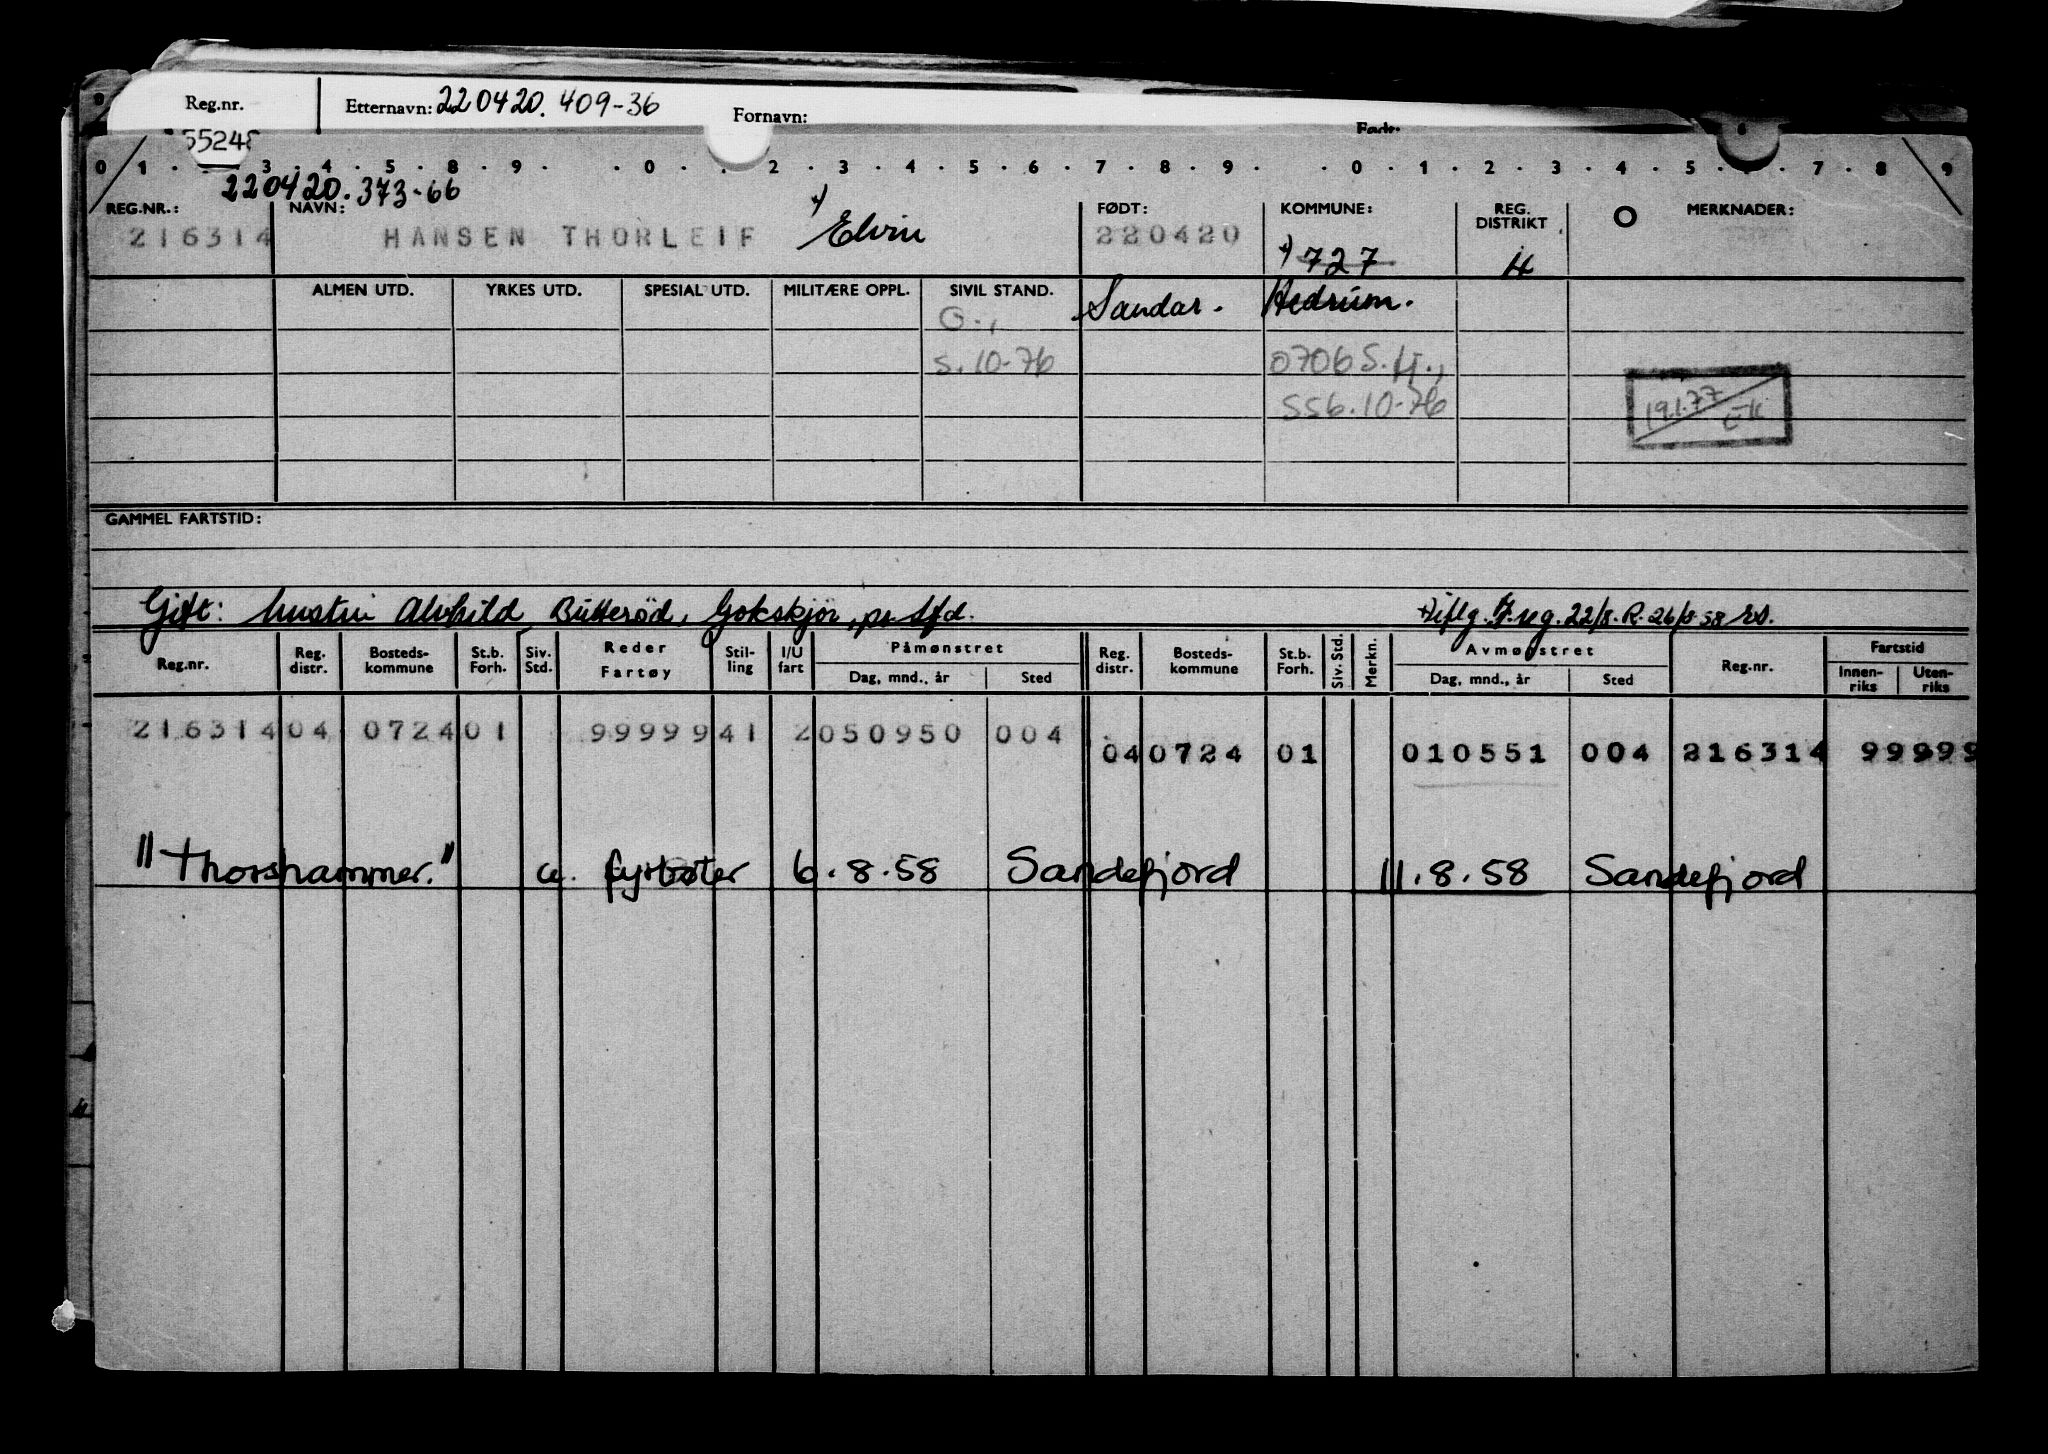 Reg.nr. Etternavn: 220420.409-36 Fornavn:
5524
0 1 . . 3 . 4 . 5 . 8 . 9 . . 0 . . . 2 . 3 . 4 . 5 . 6 . 7 . 8 . 9 . . 0 . 1 . 2 . 3 . 4 . 5 . . 7 . 8 . 9
220420.373-66
REG.NR.: NAVN: FØDT: KOMMUNE: REG. DISTRIKT MERKNADER:
216314 HANSEN THORLEIF x) Elvin 220420 x) 727 H
ALMEN UTD. YRKES UTD. SPESIAL UTD. MILITÆRE OPPL. SIVIL STAND. Sandar. Hedrum.
G.,
s. 10-76 0706 S.H.,
SS6.10-76 19.1.77 EK
GAMMEL FARTSTID:
Gift: hustru Alvhild, Butterød, Gokskjør, pr. Sfd. 22/8. R. 26/8 58
Reg.nr. Reg. distr. Bosteds-kommune St.b. Forh. Siv. Std. Reder Fartøy Stil-ling I/U fart Påmønstret Dag, mnd., år Sted Reg. distr. Bosteds-kommune St.b. Forh. Siv. Std. Merkn. Avmønstret Dag, mnd., år Sted Reg.nr. Fartstid Innen-riks Uten-riks
216314 04 0724 01 99999 41 2 050950 004 04 0724 01 010551 004 216314 99999
"Thorshammer." fyrbøter 6.8.58 Sandefjord 11.8.58 Sandefjord